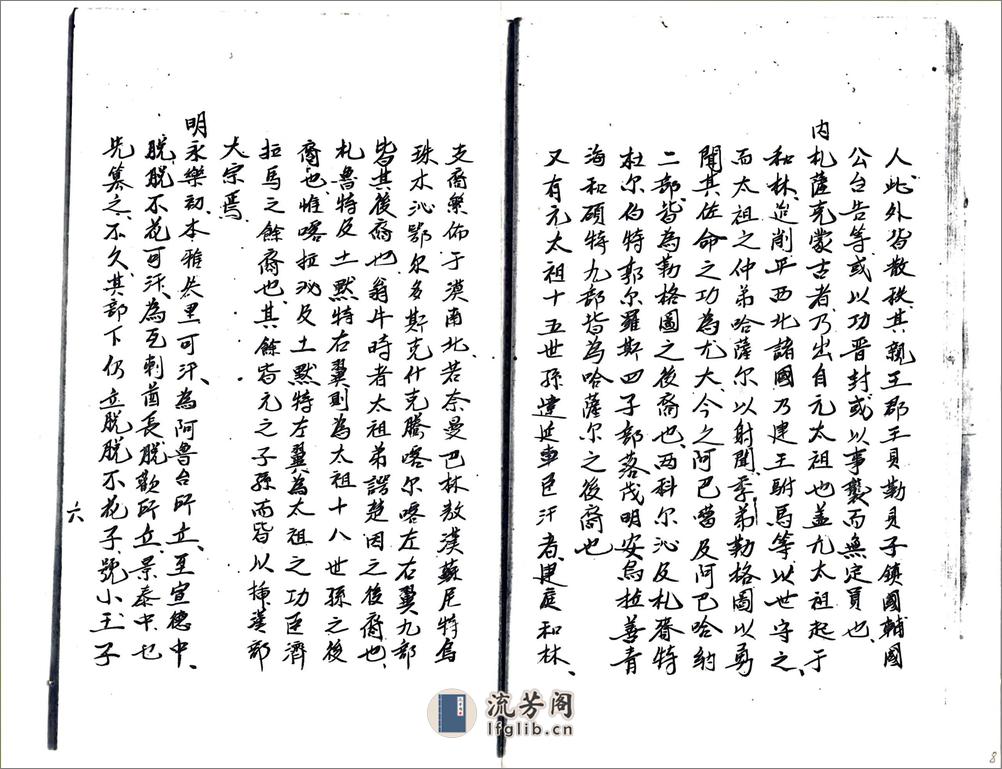 人此外皆散秩其親王郡王貝勒貝子鎮國輔國
公台吉等或以功晋封或以事襲而無定員也
内札薩克蒙古者乃出自元太祖也蓋元太祖起于
和林進削平西北諸國乃建王駙馬等以世守之
而太祖之仲弟哈薩尔以射聞季弟勒格圖以勇
聞其佐命之功為尤大今之阿巴噶及阿巴哈納
二部皆為勒格圖之後裔也两科尔沁及札賚特
杜尔伯特郭尔羅斯四子部落茂明安烏拉善青
海和碩特九部皆為哈薩尔之後裔也
又有元太祖十五世孫達延車臣汗者建庭和林
支裔縣佈于漠南北若奈曼巴林敖漢蘇尼特烏
珠木沁鄂尔多斯克什克騰喀尔喀左右翼九部
皆其後裔也翁牛特者太祖弟諤楚因之後裔也
札魯特及土黙特右翼則為太祖十八世孫之後
裔也惟喀拉沁及土黙特左翼為太祖之功臣濟
拉馬之餘裔也其餘皆元之子孫而皆以揷漢部
大宗焉
明永樂初本雅里可汗為阿魯台所立至宣德中
脱脱不花可汗為瓦剌酋長脱歡所立景泰中乜
先簒之不久其部下仍立脱脱不花子號小王子
六
流芳阁
lfglib.cn
8